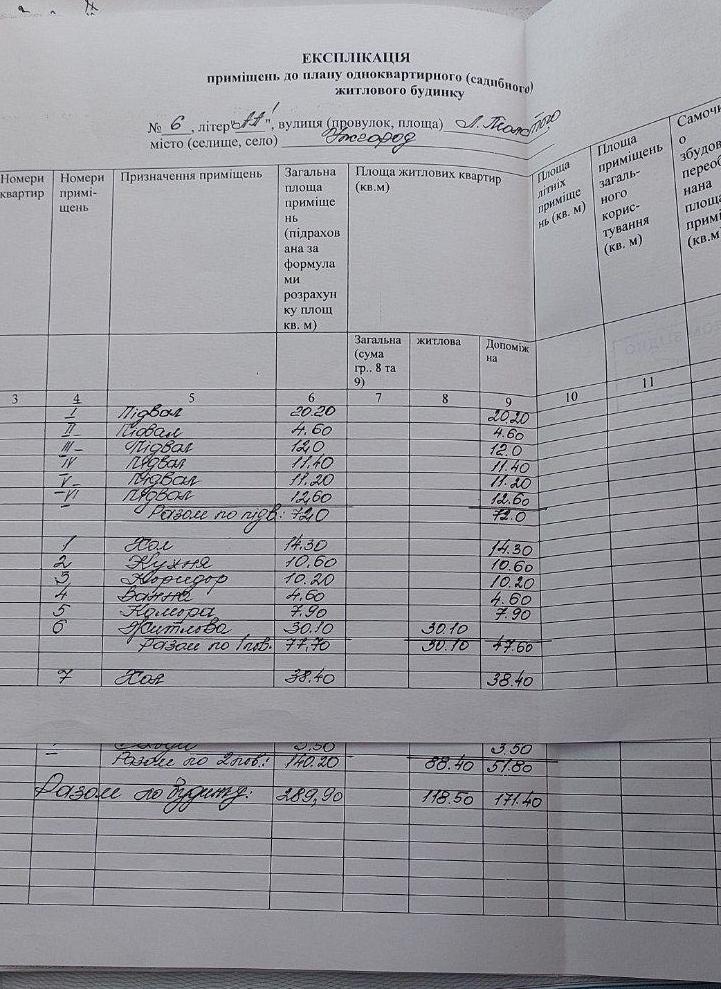 ЕКСПЛІКАЦІЯ
приміщень до плану одноквартирного (садибного)
житлового будинку
№ 6, літер "А'", вулиця (провулок, площа) Л. Толстого
місто (селище, село) Ужгород
Номери квартир Номери примі-щень Призначення приміщень Загальна площа приміще нь (підрахов ана за формула ми розрахун ку площ кв. м) Площа житлових квартир (кв.м) Площа літніх приміще нь (кв. м) Площа приміщень загаль-ного корис-тування (кв. м) Самочи о збудов перео нана площа примі (кв.м
Загальна (сума гр.. 8 та 9) житлова Допоміж на
3 4 5 6 7 8 9 10 11
I Підвал 20.20 20.20
II Підвал 4.60 4.60
III Підвал 12.0 12.0
IV Підвал 11.40 11.40
V Підвал 11.20 11.20
VI Підвал 12,60 12.60
Разом по підв.: 72,0 72.0
1 Хол 14.30 14.30
2 Кухня 10,60 10.60
3 Коридор 10.20 10.20
4 Ванна 4.60 4.60
5 Комора 7.90 7.90
6 Житлова 30.10 30.10
Разом по 1 пов. 77,70 30.10 47.60
7 Хол 38.40 38.40
3.50 3.50
Разом по 2 пов.: 140.20 88.40 51.80
Разом по будинку: 289,90 118.50 171.40